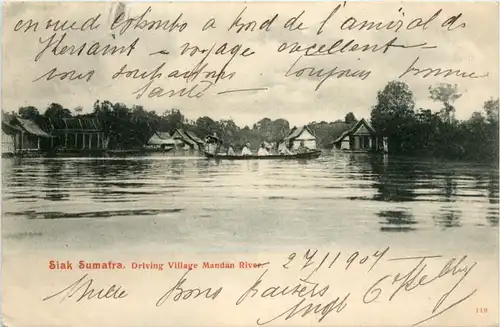 en route Colombo a bord de l'amiral de
Kersaint — voyage excellent —
vous souhaitons toujours bonne
santé —
Siak Sumatra. Driving Village Mandan River.
2/7 1904
Mille Bons Baisers
119